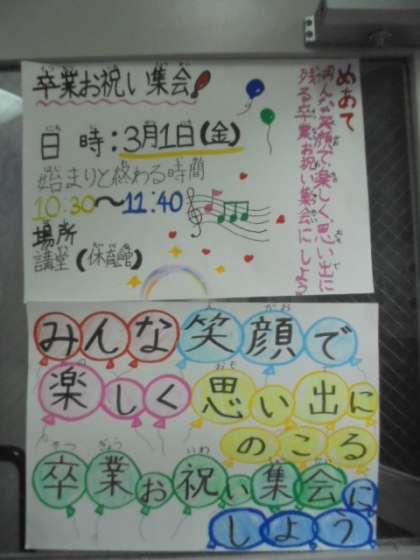 卒業お祝い集会!
めあて
みんな笑顔で楽しく思い出に
残る卒業お祝い集会にしよう
日時:3月1日(金)
始まりと終わる時間
10:30〜11:40
場所
講堂(体育館)
みんな笑顔で
楽しく思い出に
のこる
卒業お祝い集会に
しよう